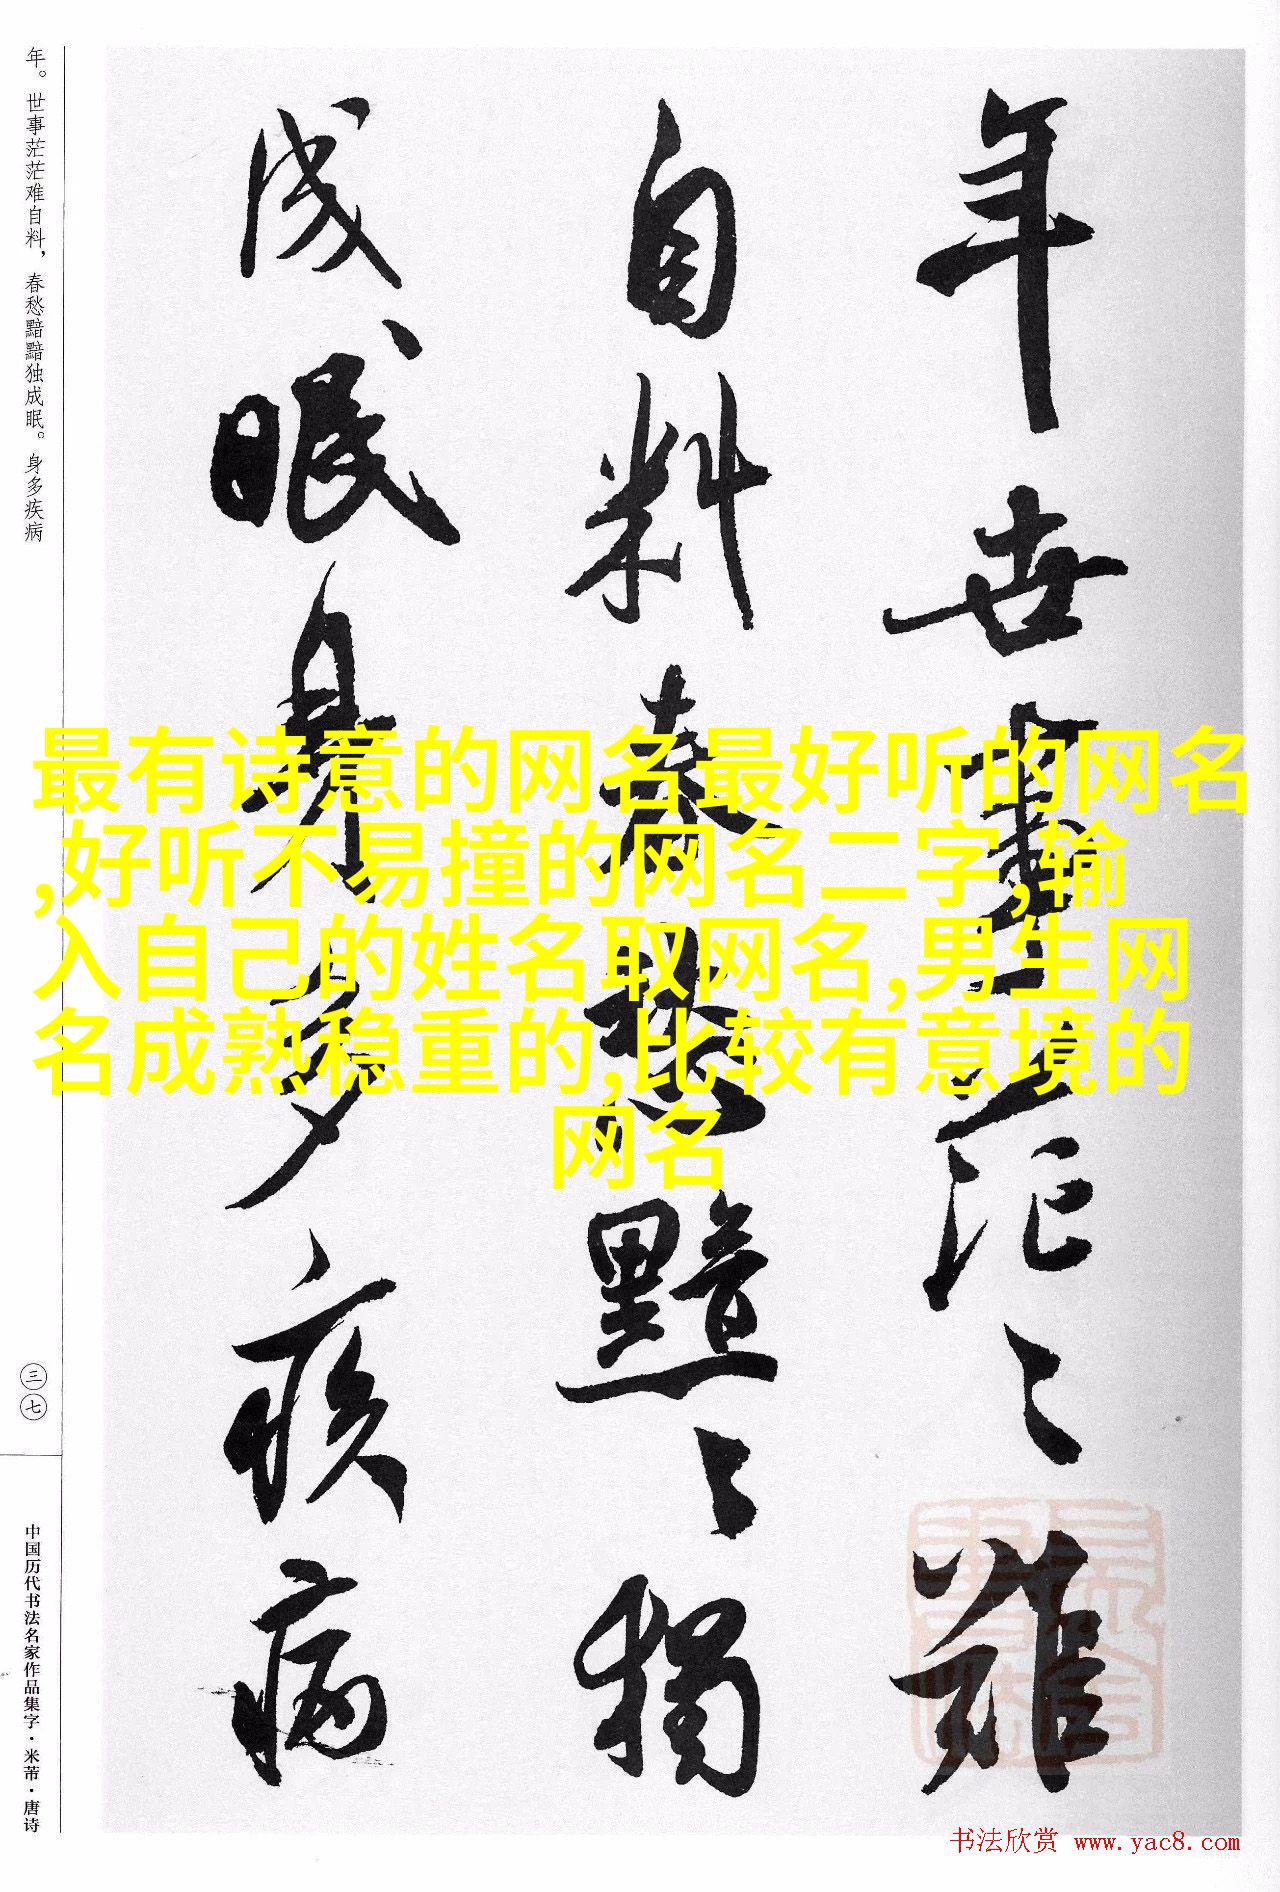 年世事茫々难
自料春愁黯々独
成眠身多疾病
年。世事茫茫难自料，春愁黯黯独成眠。身多疾病
三七
中国历代书法名家作品集字·米芾·唐诗
最有诗意的网名最好听的网名
,好听不易撞的网名二字,输
入自己的姓名取网名,男生网
名成熟稳重的,比较有意境的
网名
书法欣赏 www.yac8.com